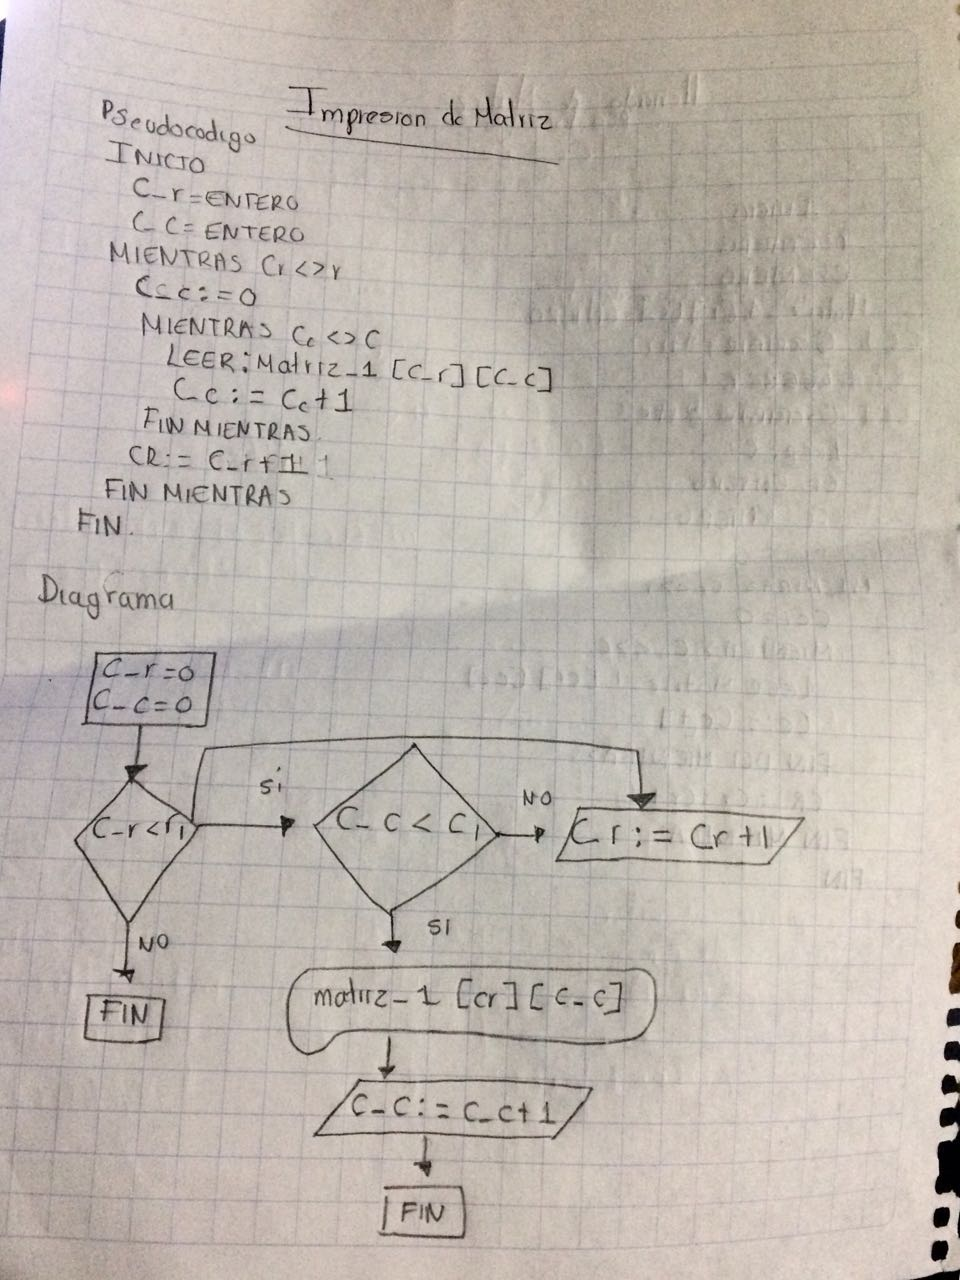 Impresion de Matriz
Pseudocodigo
INICIO
C_r = ENTERO
C_C = ENTERO
MIENTRAS Cr <> r
C_c := 0
MIENTRAS Cc <> C
LEER: Matriz_1 [C_r] [C_c]
C_c := Cc + 1
FIN MIENTRAS
CR := C_r + 1
FIN MIENTRAS
FIN.
Diagrama
C_r = 0
C_c = 0
C_r < r1
si
C_c < C1
NO
Cr := Cr + 1
NO
SI
FIN
matriz_1 [cr] [c_c]
C_C := C_c + 1
FIN